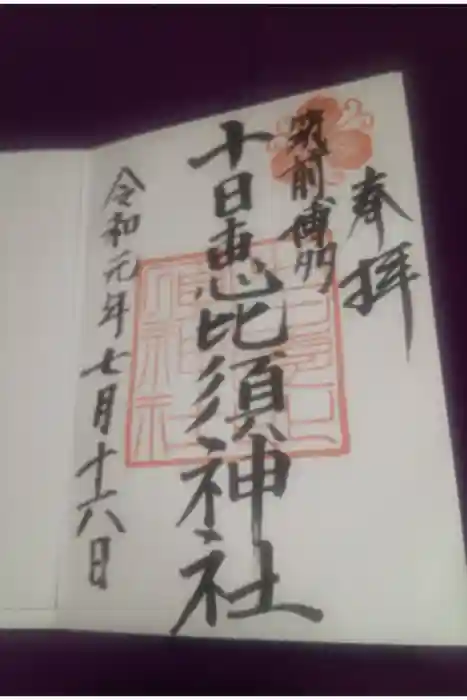 奉拝
筑前博多
十日恵比須神社
令和元年七月十六日